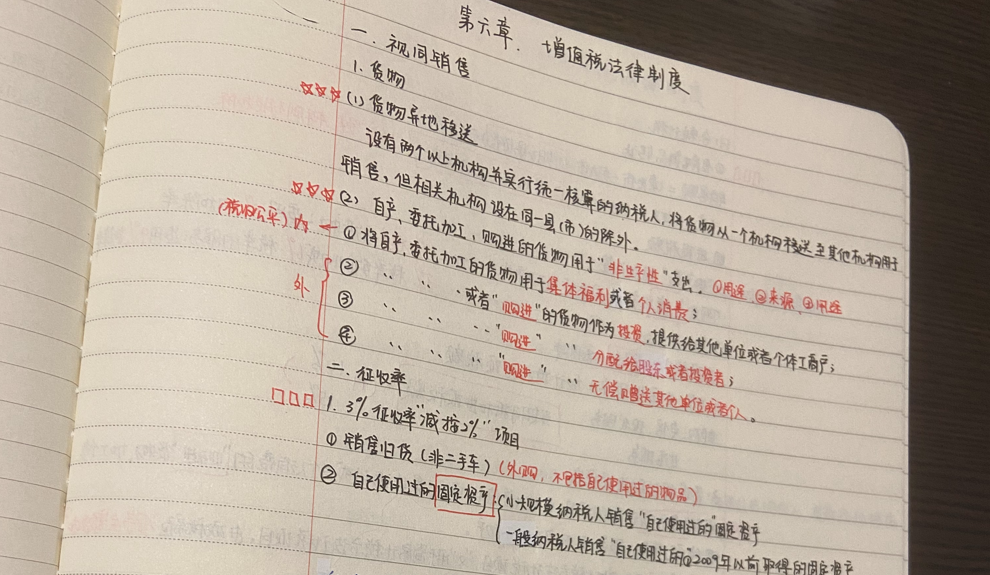 第六章. 增值税法律制度
一. 视同销售
1. 货物
☆☆☆ (1) 货物异地移送
设有两个以上机构并实行统一核算的纳税人, 将货物从一个机构移送至其他机构用于
销售, 但相关机构设在同一县(市)的除外.
☆☆☆ (2) 自产、委托加工、购进的货物用于"非生产性"支出. ①用途 ②来源 ③用途
(税收公平) 内 ← ① 将自产、委托加工的货物用于集体福利或者个人消费;
外 ② 〃 〃 〃 或者"购进"的货物作为投资, 提供给其他单位或者个体工商户;
③ 〃 〃 〃 "购进" 〃 分配给股东或者投资者;
④ 〃 〃 〃 "购进" 〃 无偿赠送其他单位或者个人.
二. 征收率
□□□ 1. 3%征收率"减按2%"项目
① 销售旧货 (非二手车) (外购, 不包括自己使用过的物品)
② 自己使用过的固定资产 { 小规模纳税人销售"自己使用过的"固定资产
一般纳税人销售"自己使用过的①2009年以前取得的固定资产